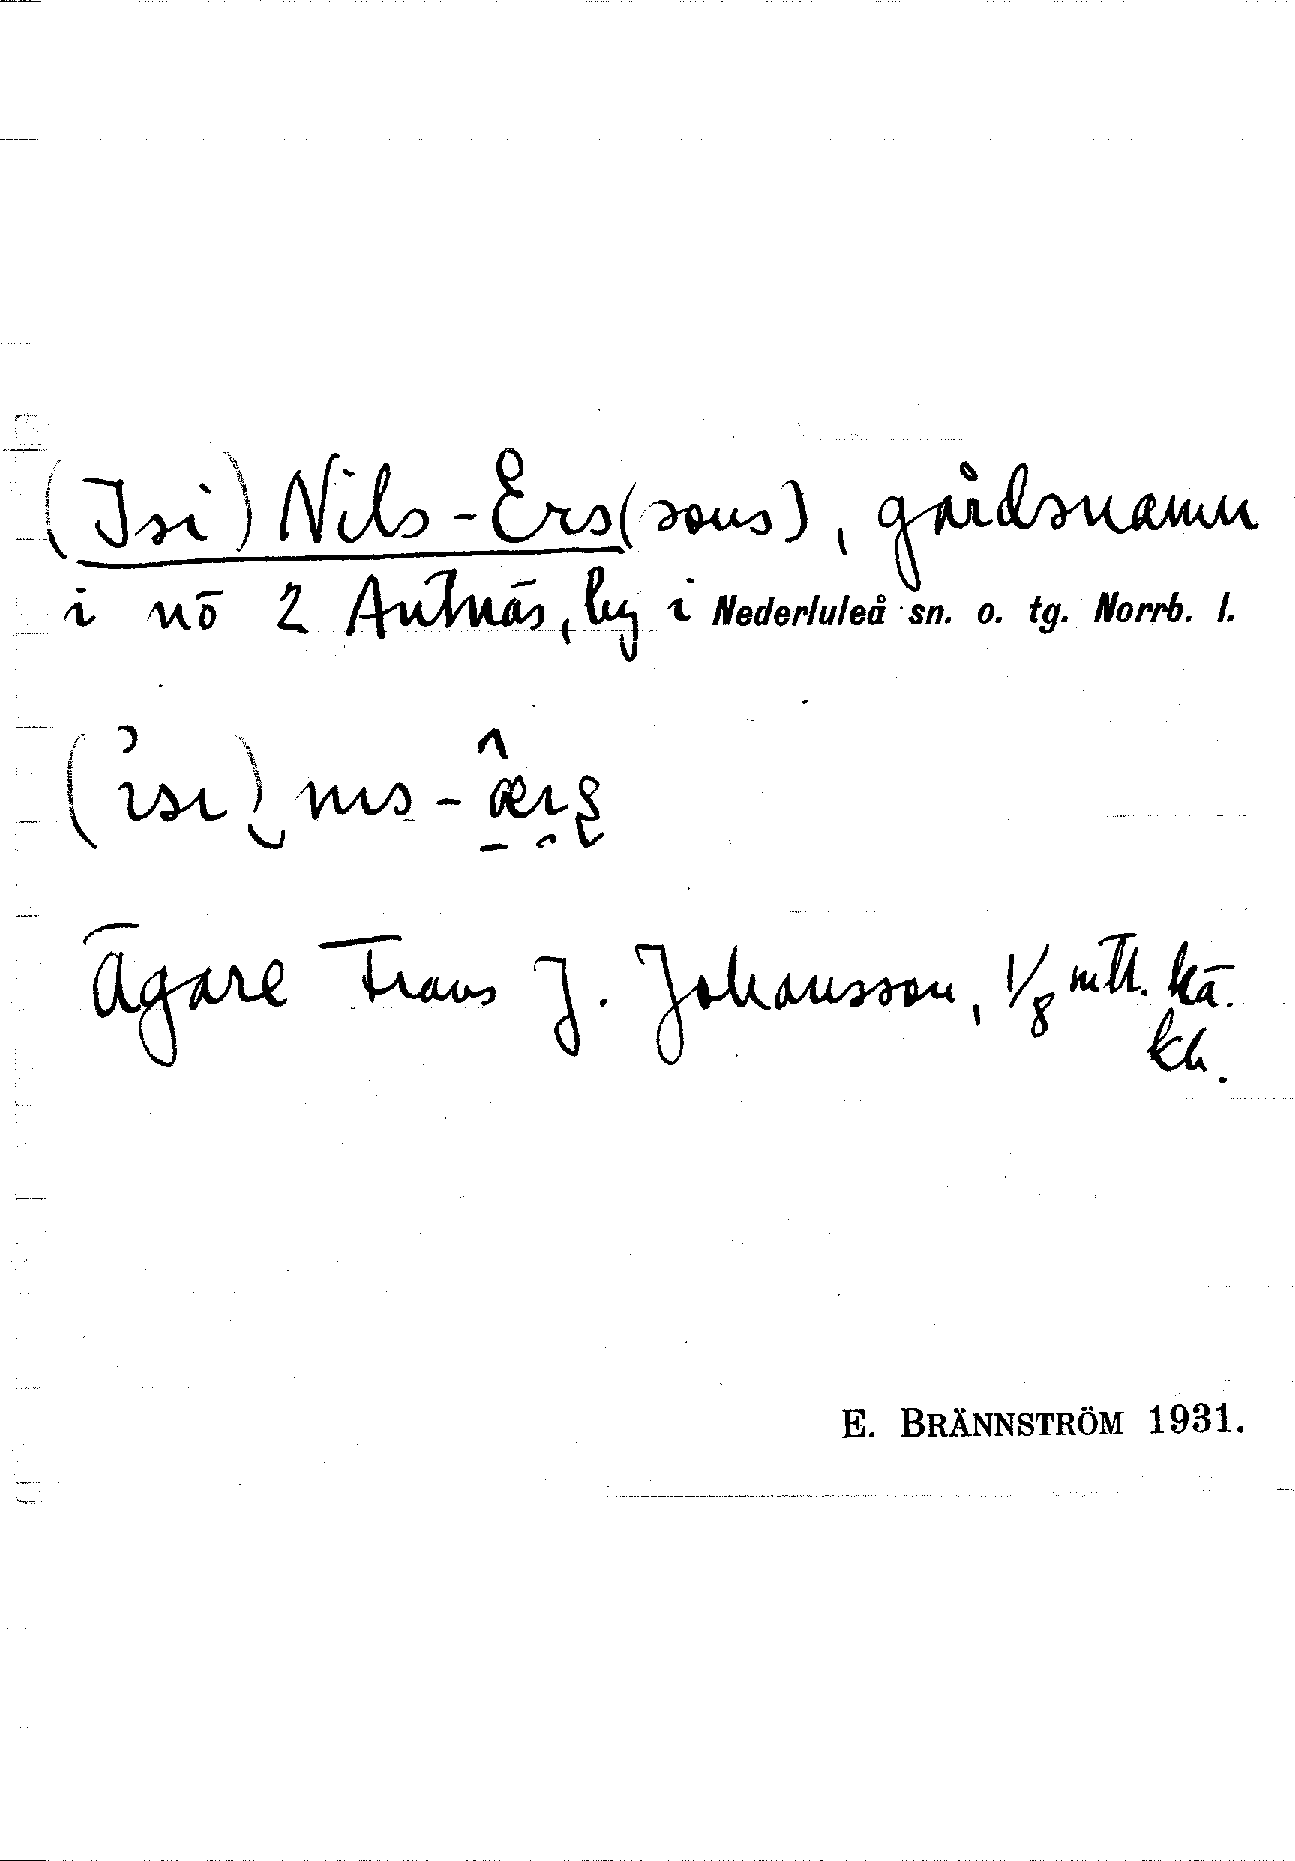 (Isi) Nils-Ers(sons), gårdsnamn
i nö 2 Antnäs, by i Nederluleå sn. o. tg. Norrb. l.
Ägare Frans J. Johansson, 1/8 mtl. kä.
kh.
E. BRÄNNSTRÖM 1931.